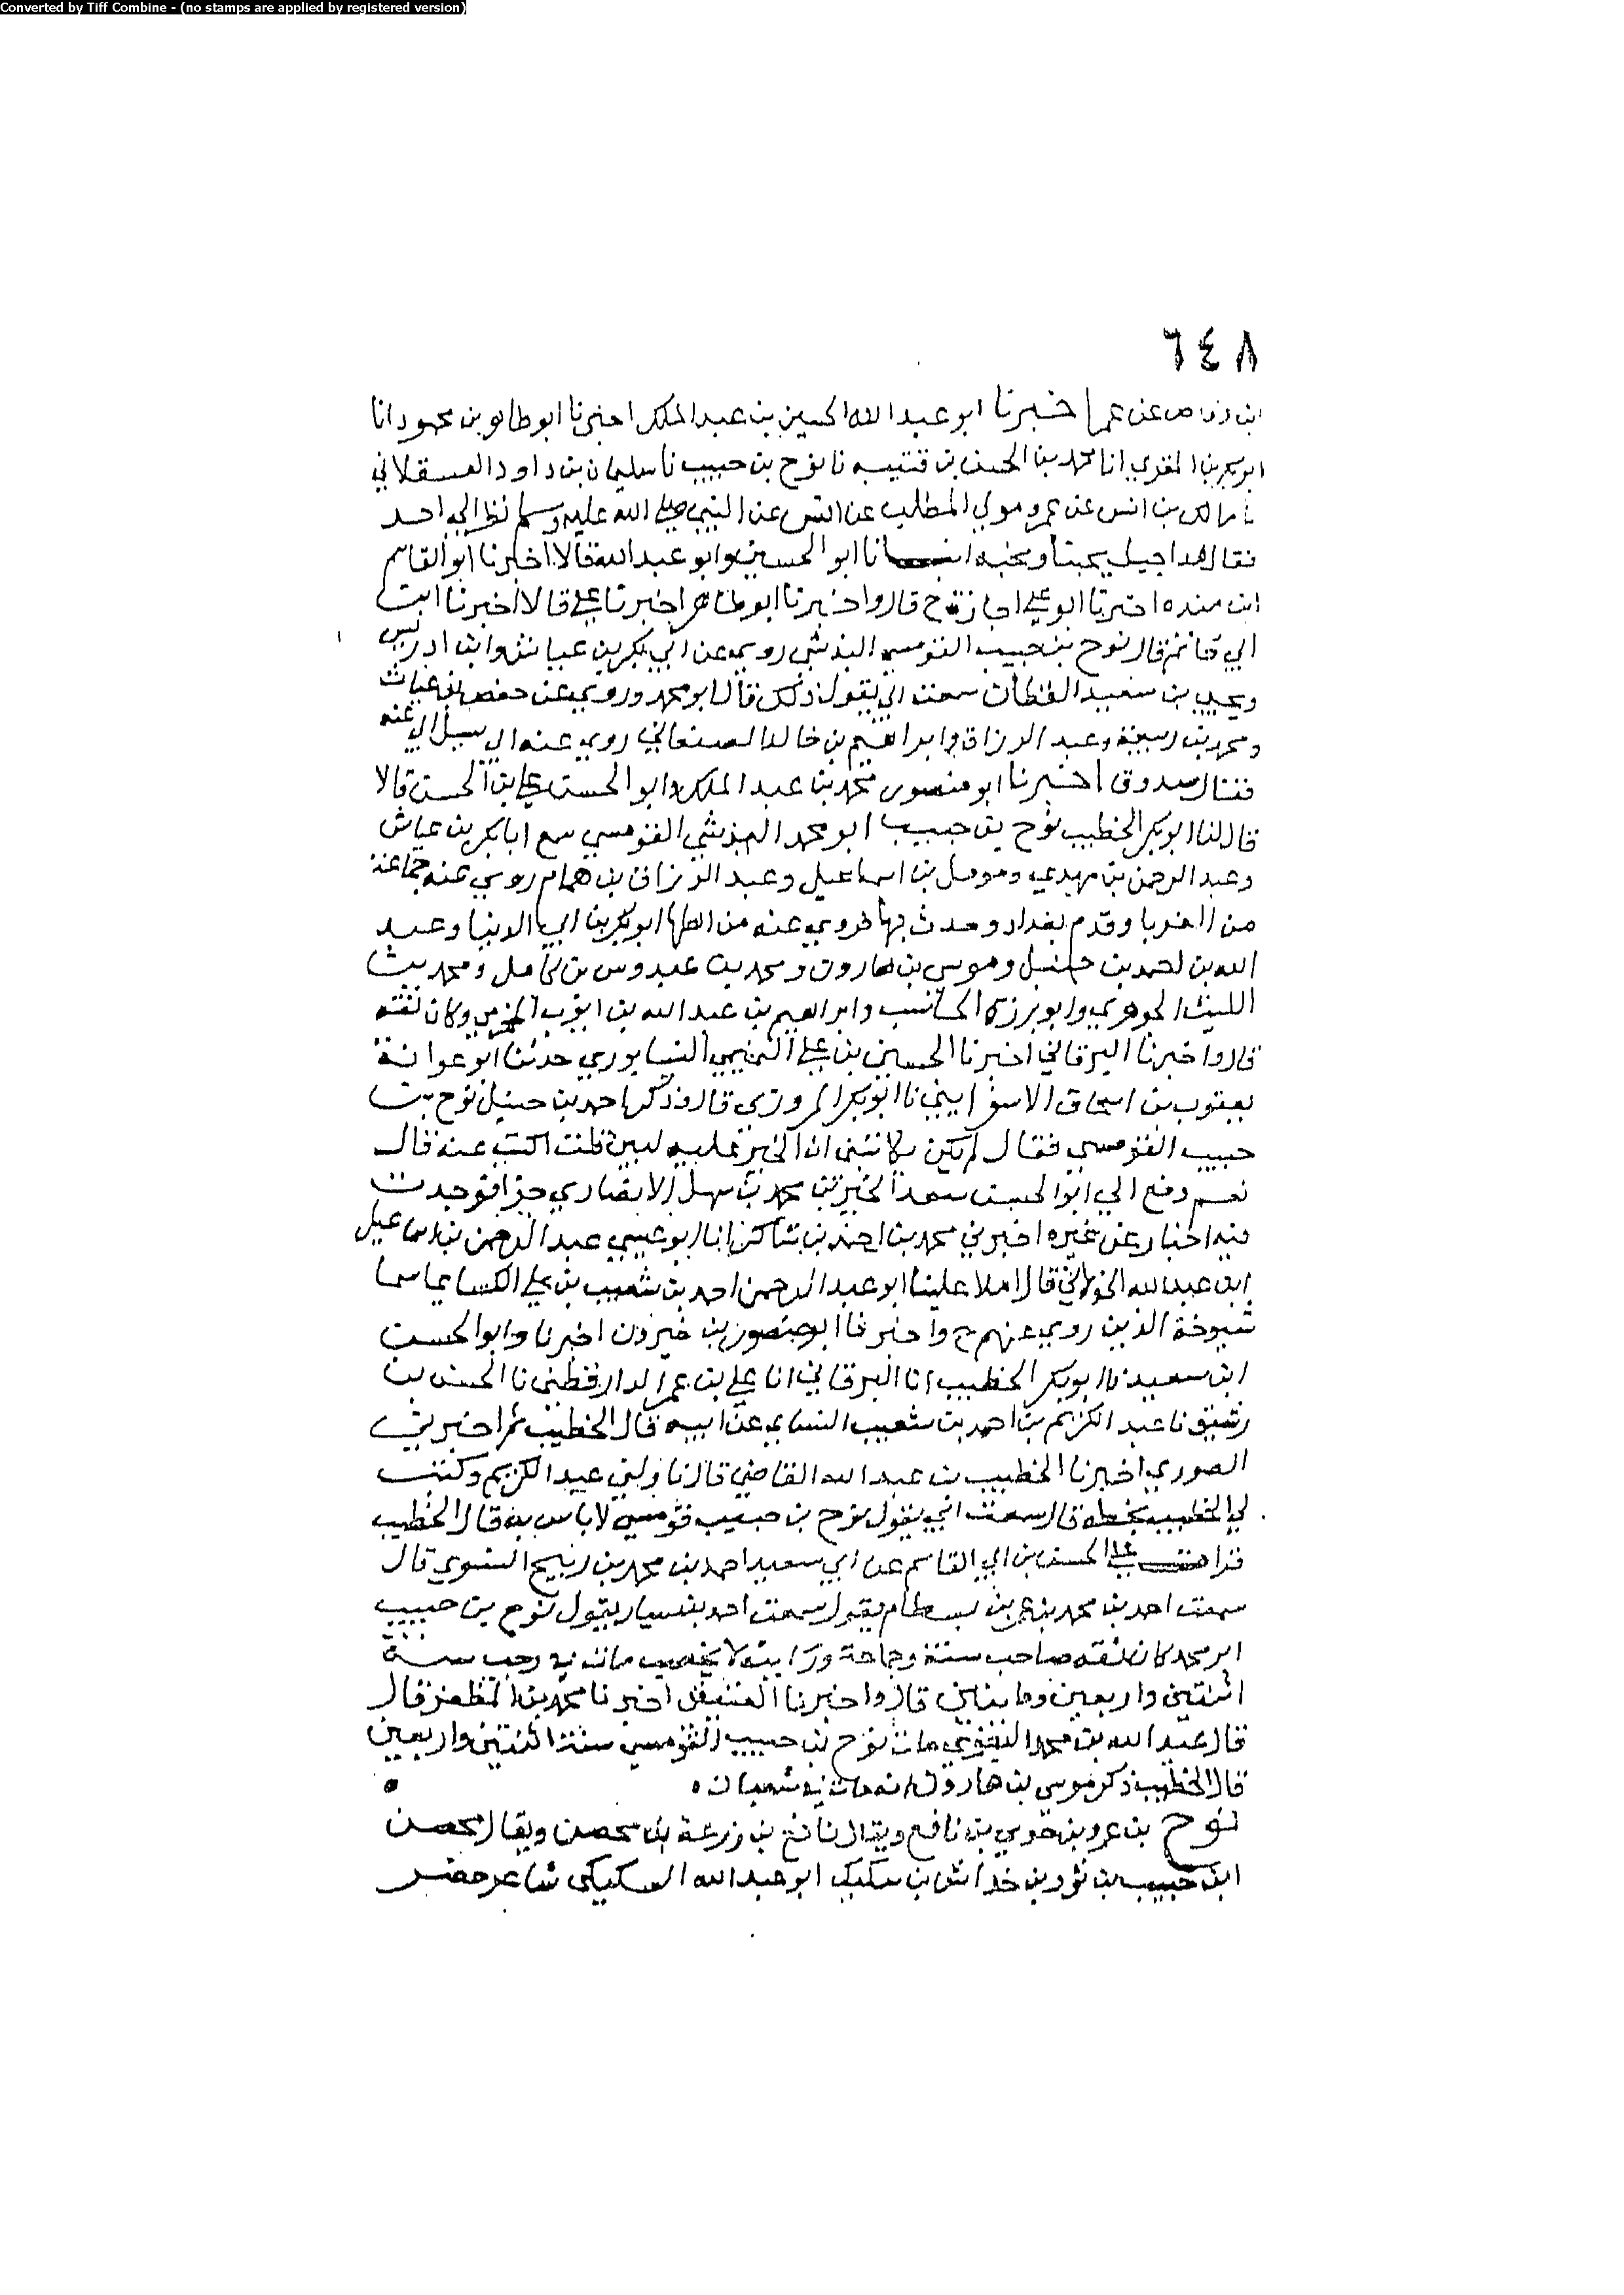 Converted by Tiff Combine - (no stamps are applied by registered version)
٦٤٨
ابن وقاص عن عمر اخبرنا ابو عبد الله الحسين بن عبد الملك اخبرنا ابو طاهر بن محمود انا
ابو بكر بن المقري انا محمد بن الحسن بن قتيبه نا نوح بن حبيب نا سليمان بن داود العسقلاني
نا مالك بن انس عن عمرو مولي المطلب عن انس عن النبي صلى الله عليه وسلم نظر الي احد
فقال هذا جبل يحبنا ونحبه انبانا ابو الحسين وابو عبد الله قالا اخبرنا ابو القاسم
ابن منده اخبرنا ابو علي اجازة ح قال واخبرنا ابو طاهر اخبرنا علي قالا اخبرنا ابن
ابي حاتم قال نوح بن حبيب القومسي البذشي روي عن ابي بكر بن عياش وابن ادريس
ويحيي بن سعيد القطان سمعت ابي يقول ذلك قال ابو محمد وروي عن حفص بن غياث
ومحمد بن ربيعة وعبد الرزاق وابراهيم بن خالد الصنعاني روي عنه ابي سيل ابي عنه
فقال صدوق اخبرنا ابو منصور محمد بن عبد الملك وابو الحسن علي بن الحسن قالا
قال لنا ابو بكر الخطيب نوح بن حبيب ابو محمد البذشي القومسي سمع ابا بكر بن عياش
وعبد الرحمن بن مهدي ومومل بن اسماعيل وعبد الرزاق بن همام روي عنه جماعة
من الغربا وقدم بغداد وحدث بها فروي عنه من اهلها ابو بكر بن ابي الدنيا وعبد
الله بن احمد بن حنبل وموسي بن هارون ومحمد بن عبدوس بن كامل ومحمد بن
الليث الجوهري وابو برزة الحاسب وابراهيم بن عبد الله بن ايوب المخرمي وكان ثقة
قال واخبرنا البرقاني اخبرنا الحسين بن علي التميمي النيسابوري حدثنا ابو عوانة
يعقوب بن اسحاق الاسفرايني نا ابو بكر المروزي قال وذكر احمد بن حنبل نوح بن
حبيب القومسي فقال لم يكن به ان الخير عليه لبين قلت اكتب عنه قال
نعم دفع الي ابو الحسن سعد الخير بن محمد بن سهل الانصاري جزا فوجدت
فيه اخبار عن غيره اخبرني محمد بن احمد بن شاكر انا ابو عيسي عبد الرحمن بن اسماعيل
ابن عبد الله الخولاني قال املا علينا ابو عبد الرحمن احمد بن شعيب بن علي النساي اسما
شيوخه الذين روي عنهم ح واخبرنا ابو منصور بن خيرون اخبرنا وابو الحسن
ابن سعيد نا ابو بكر الخطيب انا البرقاني انا علي بن عمر الدارقطني نا الحسن بن
رشيق نا عبد الكريم بن احمد بن شعيب النساي عن ابيه قال الخطيب ثم اخبرني
الصوري اخبرنا الخطيب بن عبد الله القاضي قال ناولني عبد الكريم وكتب
لي الخطيب بخطه قال سمعت ابي يقول نوح بن حبيب قومسي لا باس به قال الخطيب
قرات علي الحسن بن ابي القاسم عن ابي سعيد احمد بن محمد بن ربيح النسوي قال
سمعت احمد بن محمد بن عمر بن بسطام يقول سمعت احمد بن سيار يقول نوح بن حبيب
ابو محمد كان ثقه صاحب سنة وجماعة ورايته لا يخضب مات في رجب سنة
اثنتين واربعين ومايتاين قال واخبرنا العتيقي اخبرنا محمد بن المظفر قال
قال عبد الله بن محمد البغوي مات نوح بن حبيب القومسي سنة اثنتين واربعين
قال الخطيب ذكر موسي بن هارون انه مات في شعبان ه
نوح بن عمرو بن حوي بن نافع ويقال نافع بن زرعة بن محصن ويقال محصن
ابن حبيب بن ثور بن خداش بن سكسك ابو عبد الله السكسكي شاعر حضر